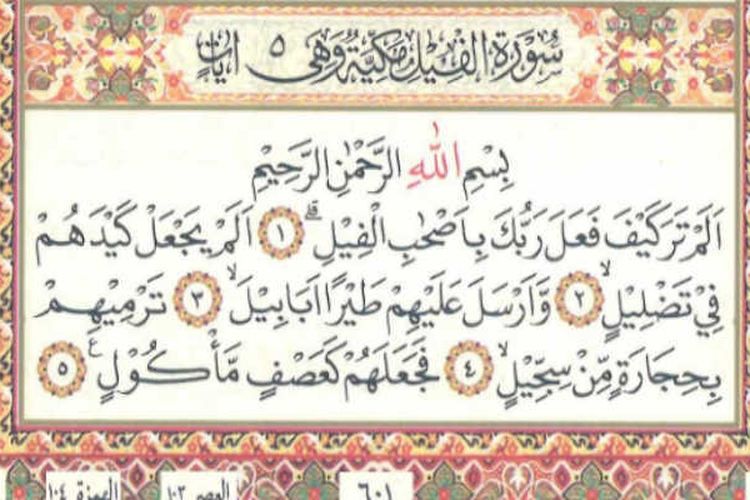 سُورَةُ الْفِيْلِ مَكِّيَّةٌ وَهِيَ ٥ اٰيَاتٍ
بِسْمِ اللّٰهِ الرَّحْمٰنِ الرَّحِيْمِ
اَلَمْ تَرَ كَيْفَ فَعَلَ رَبُّكَ بِاَصْحٰبِ الْفِيْلِۗ ١ اَلَمْ يَجْعَلْ كَيْدَهُمْ
فِيْ تَضْلِيْلٍۙ ٢ وَّاَرْسَلَ عَلَيْهِمْ طَيْرًا اَبَابِيْلَۙ ٣ تَرْمِيْهِمْ
بِحِجَارَةٍ مِّنْ سِجِّيْلٍۙ ٤ فَجَعَلَهُمْ كَعَصْفٍ مَّأْكُوْلٍ ࣖ ٥
٦٠١ العصر ١٠٣ الهمزة ١٠٤